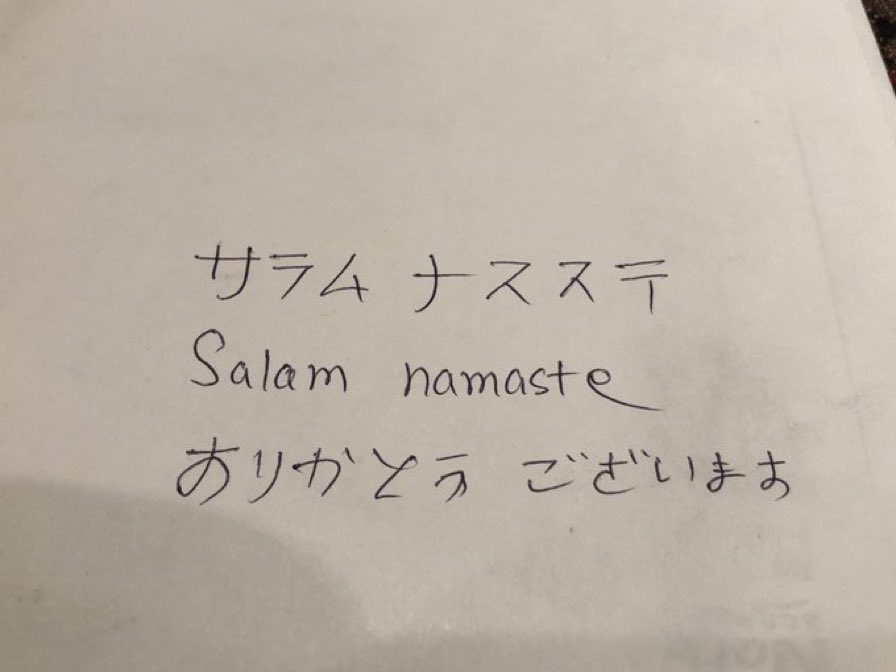 サラム ナスステ
Salam namaste
ありがとう ございます